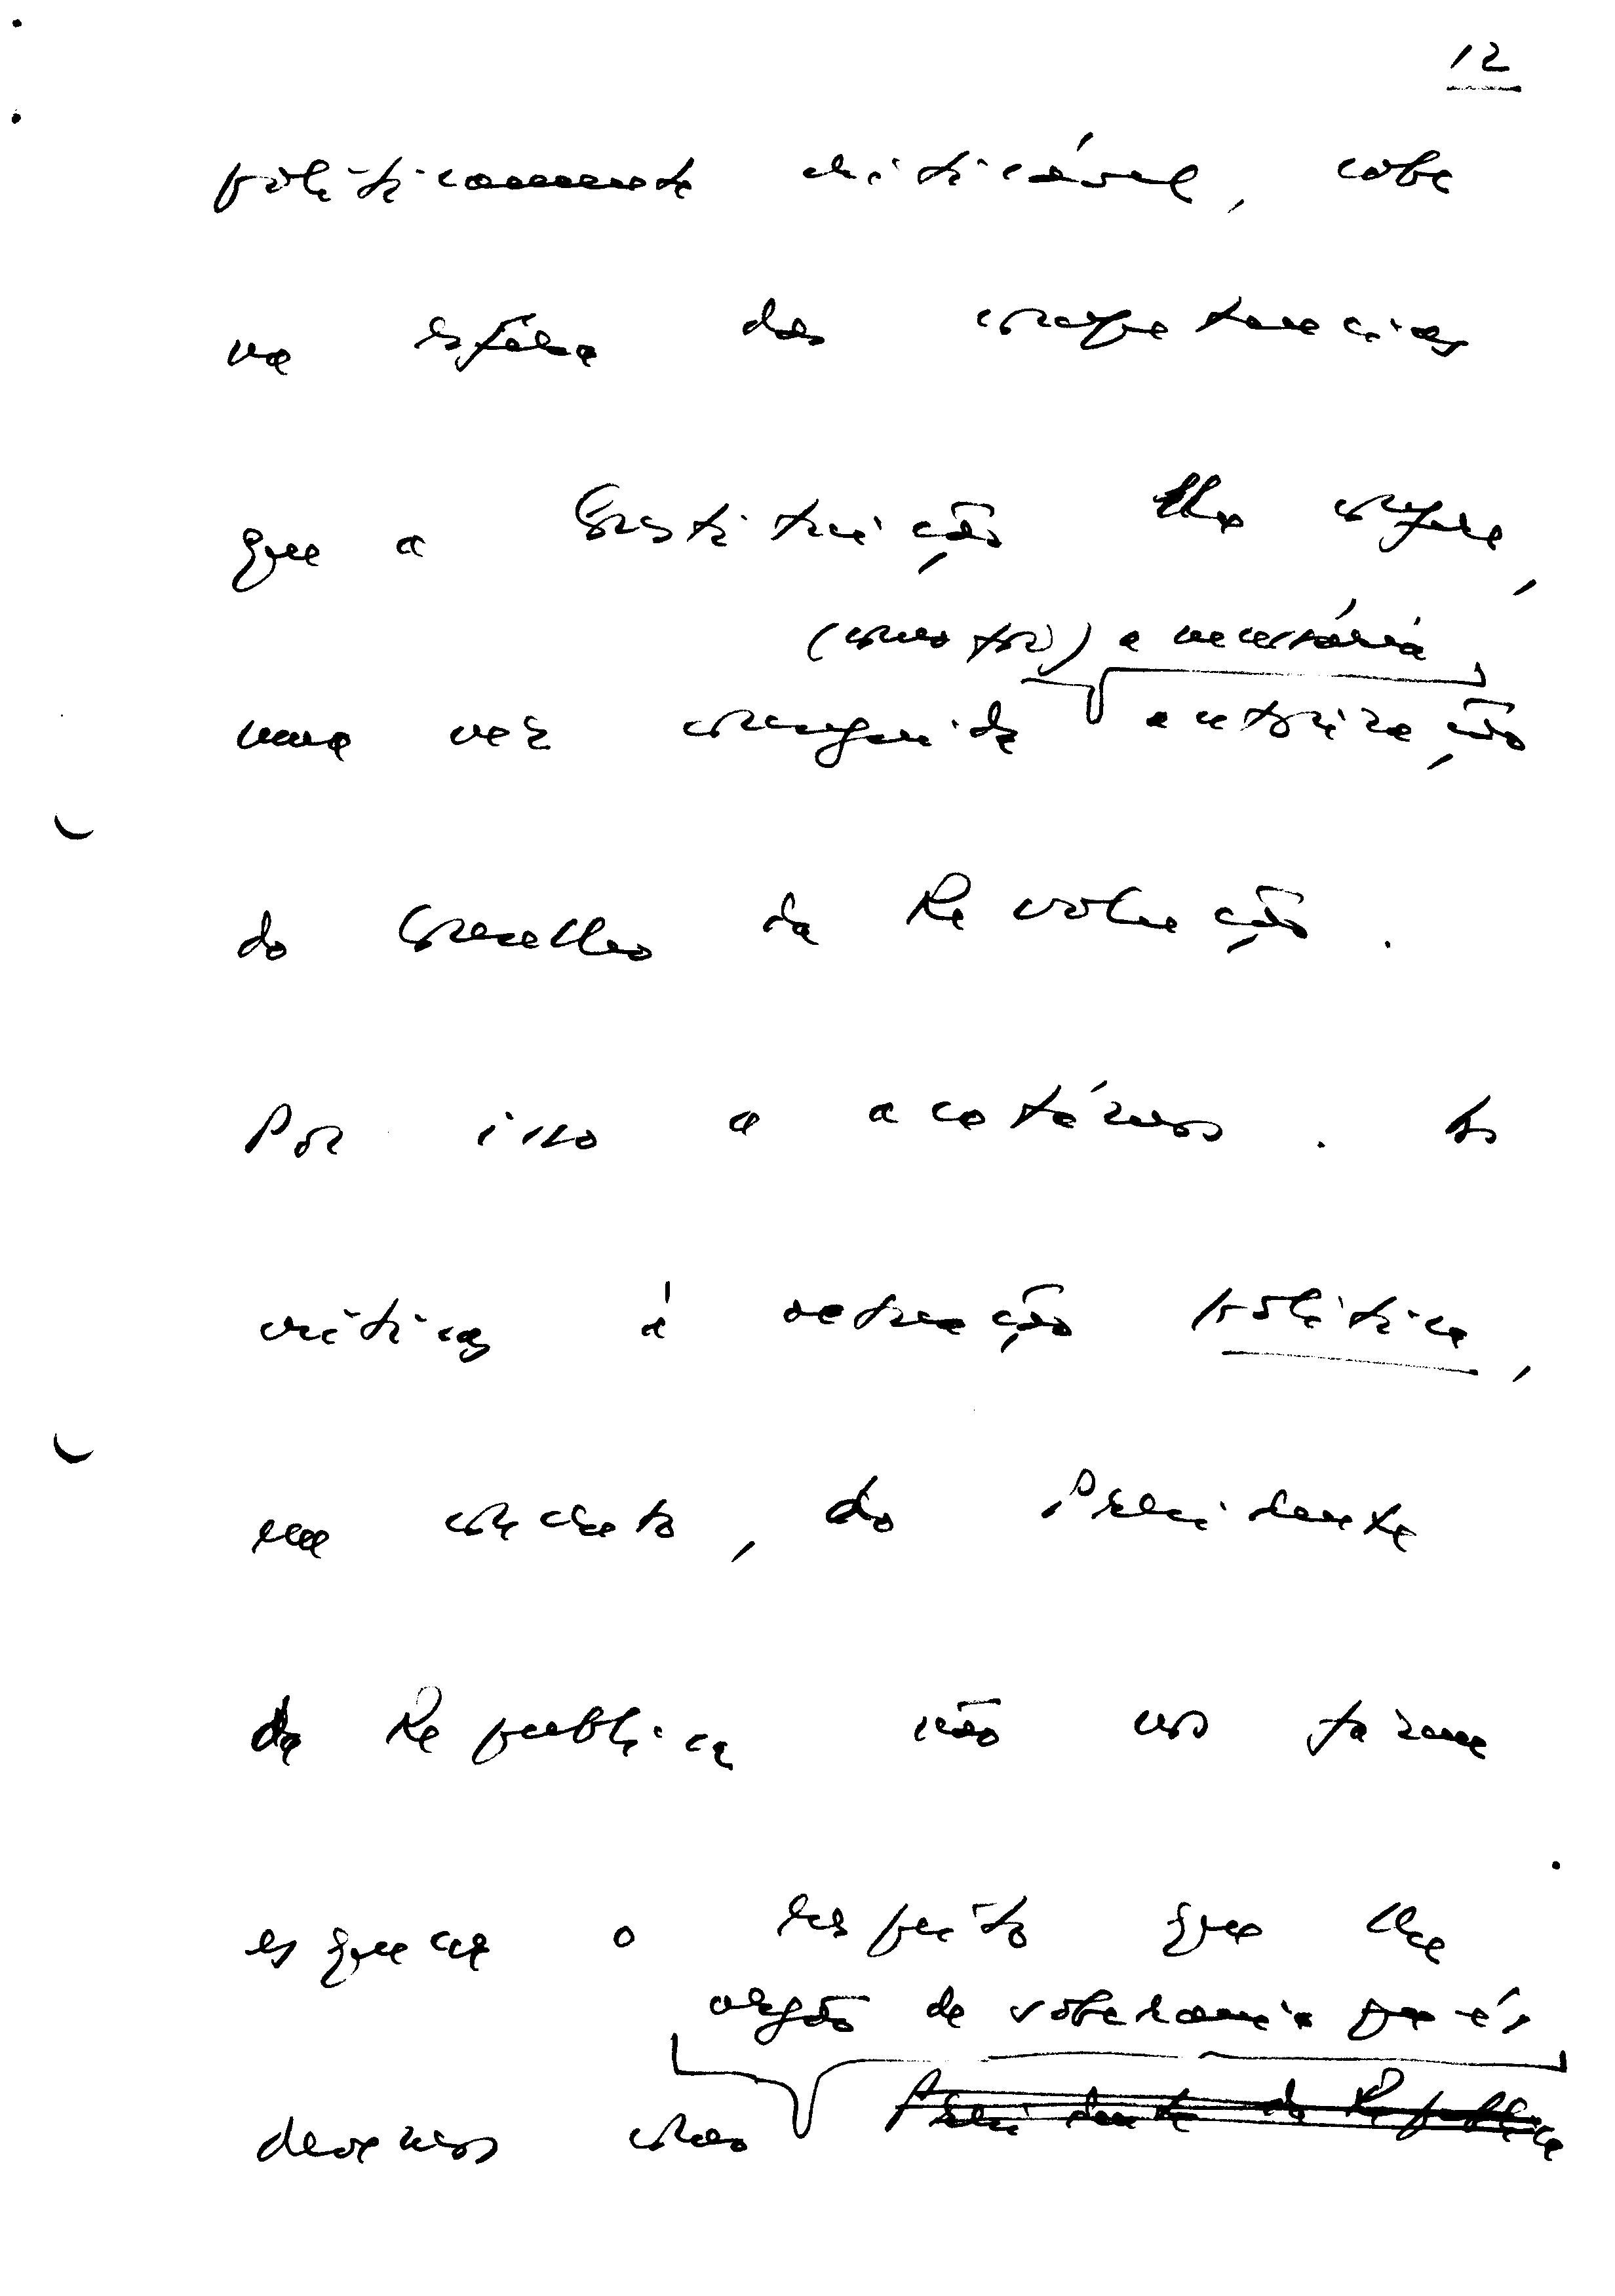 12
politicamente criticável, cabe
na esfera das competencias
que a Constituição lhe confere,
(como foi) a necessária
uma vez conseguida autorização
do Conselho da Revolução.
Por isso a acatámos. As
críticas à actuação política,
em concreto, do Presidente
da Republica não nos fazem
esquecer o respeito que lhe
orgão de soberania que é,
devemos como Presidente da Republica